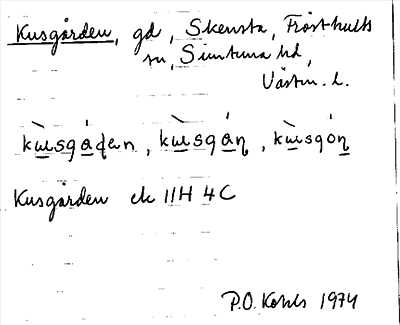 Kusgården, gd, Skensta, Frösthults
sn, Simtuna hd,
Västm. l.
kùsgáɖen, kùsgáɳ, kùsgóɳ
Kusgården ek 11H 4C
P.O. Kohls 1974